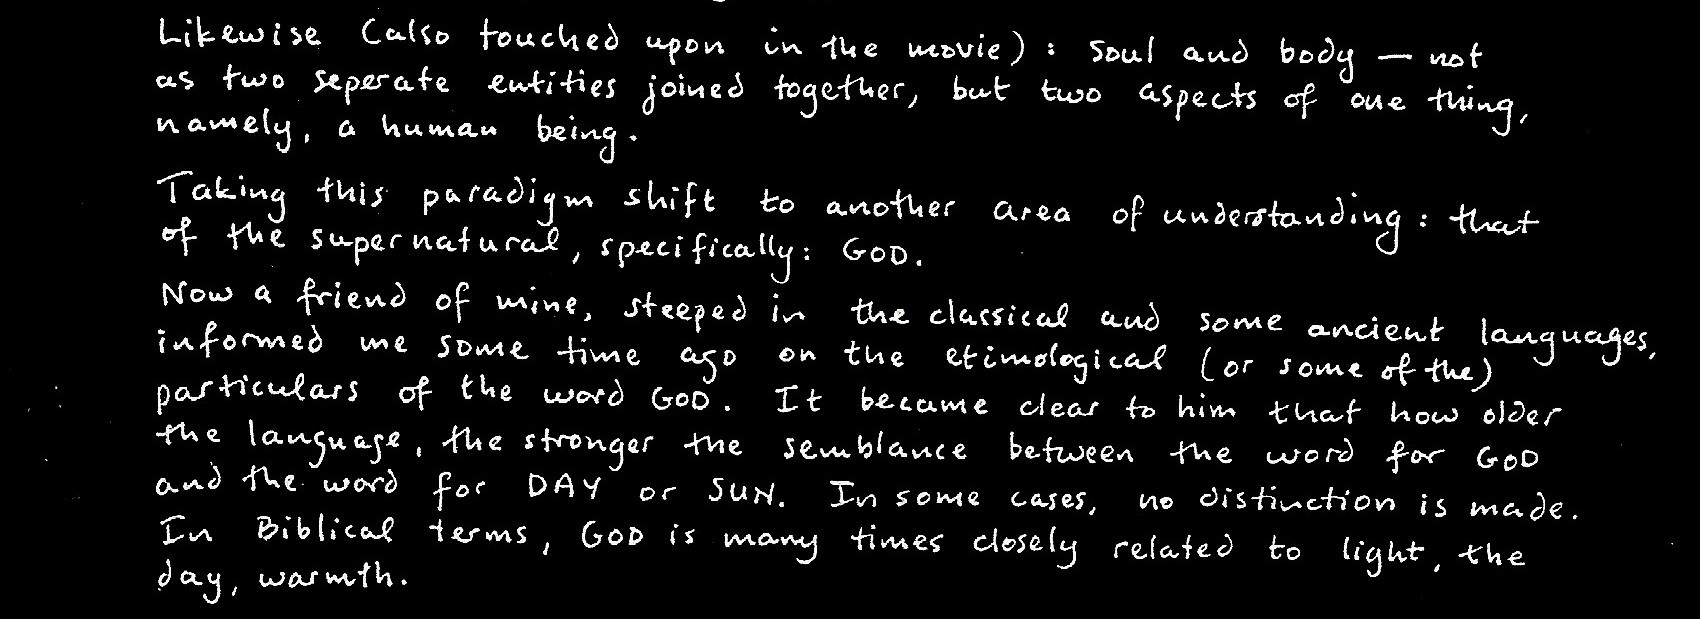 Likewise (also touched upon in the movie): soul and body — not
as two seperate entities joined together, but two aspects of one thing,
namely, a human being.
Taking this paradigm shift to another area of understanding: that
of the supernatural, specifically: GOD.
Now a friend of mine, steeped in the classical and some ancient languages,
informed me some time ago on the etimological (or some of the)
particulars of the word GOD. It became clear to him that how older
the language, the stronger the semblance between the word for GOD
and the word for DAY or SUN. In some cases, no distinction is made.
In Biblical terms, GOD is many times closely related to light, the
day, warmth.